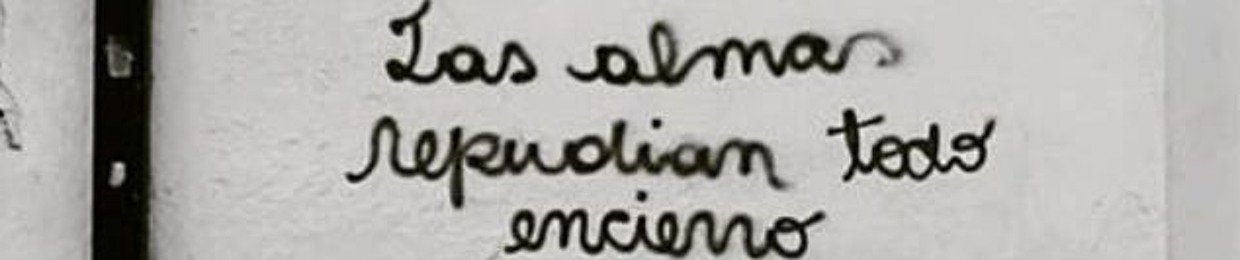 Las almas
repudian todo
encierro